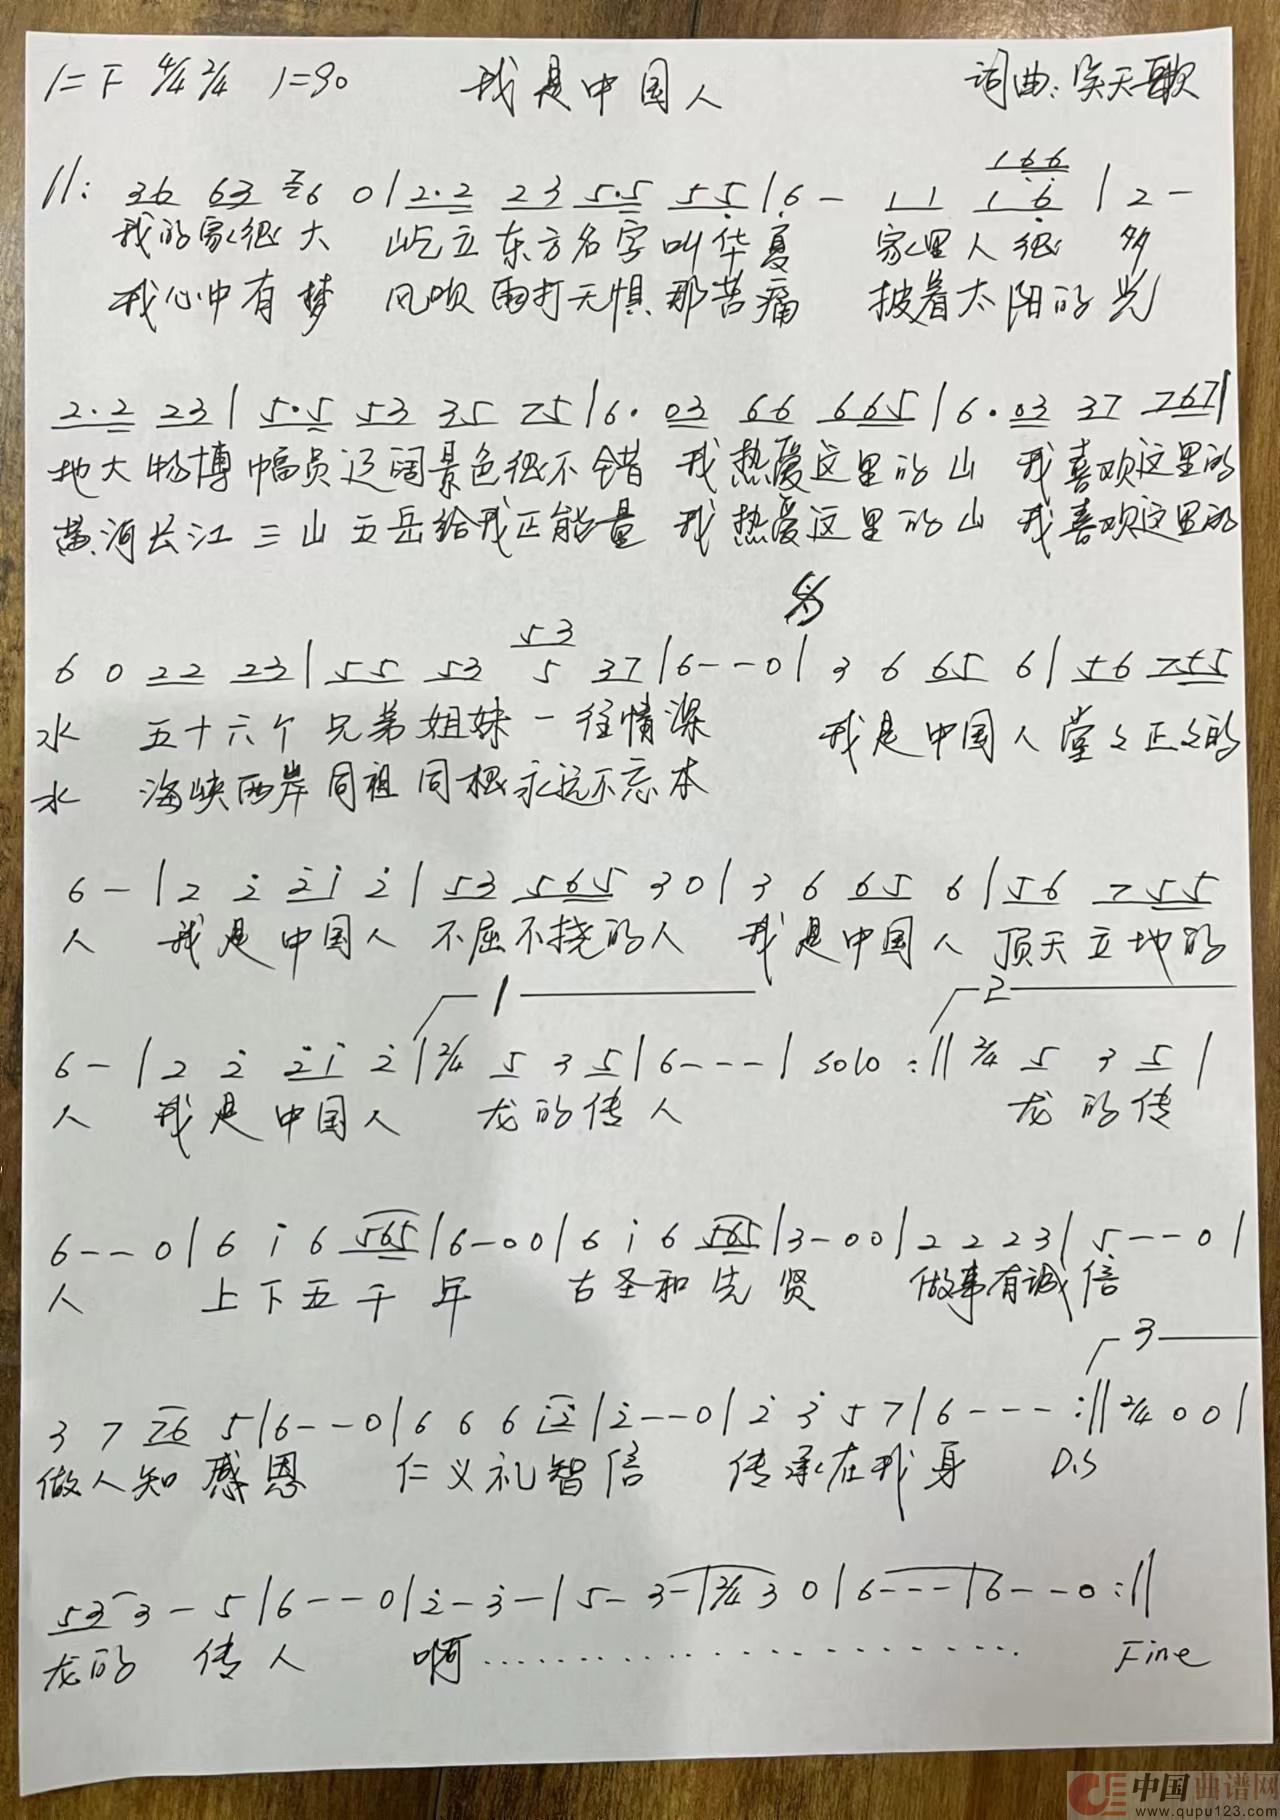 1=F 4/4 2/4 1=90 我是中国人 词曲:吴天歌
1 6 6
||: 36 63 36 0 | 2·2 23 5·5 55 | 6 - 11 16 | 2 -
我的家很大 屹立东方名字叫华夏 家里人很多
我心中有梦 风吹雨打无惧那苦痛 披着太阳的光
2·2 23 | 5·5 53 35 75 | 6· 03 66 665 | 6· 03 37 767 |
地大物博幅员辽阔景色很不错 我热爱这里的山 我喜欢这里的
黄河长江三山五岳给我正能量 我热爱这里的山 我喜欢这里的
53
6 0 22 23 | 55 53 5 37 | 6 - - 0 | 3 6 65 6 | 56 755
水 五十六个兄弟姐妹一往情深 我是中国人堂々正々的
水 海峡两岸同祖同根永远不忘本
6 - | 2 2̇ 2̇1̇ 2̇ | 53 565 30 | 3 6 65 6 | 56 755
人 我是中国人 不屈不挠的人 我是中国人 顶天立地的
1 2
6 - | 2 2̇ 2̇1̇ 2̇ | 2/4 5 3 5 | 6 - - - | solo :|| 2/4 5 3 5 |
人 我是中国人 龙的传人 龙的传
6 - - 0 | 6 1̇ 6 565 | 6 - 0 0 | 6 1̇ 6 565 | 3 - 0 0 | 2 2 2 3 | 5 - - 0 |
人 上下五千年 古圣和先贤 做事有诚信
3
3 7 76 5 | 6 - - 0 | 6 6 6 1̇2̇ | 2̇ - - 0 | 2̇ 3̇ 5 7 | 6 - - - :|| 2/4 0 0 |
做人知感恩 仁义礼智信 传承在我身 D.S
53 3 - 5 | 6 - - 0 | 2̇ - 3̇ - | 5 - 3 - | 2/4 3 0 | 6 - - - | 6 - - 0 :||
龙的 传人 啊.................... Fine
中国曲谱网
www.qupu123.com